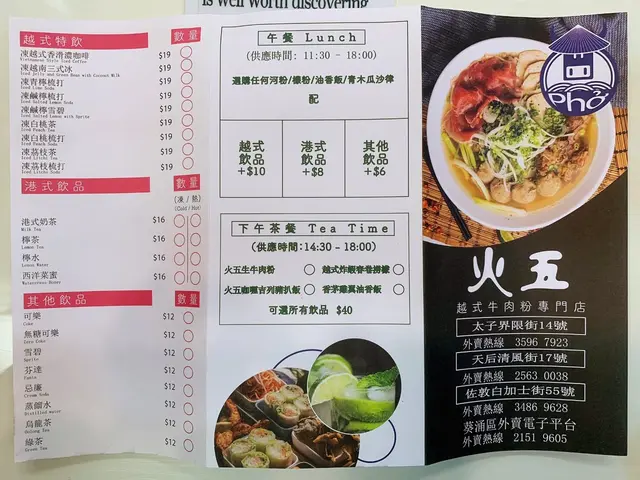 is well worth discovering
越式特飲 數量
凍越式香滑濃咖啡 $19
Vietnamese Style Iced Coffee
凍越南三式冰 $19
Iced Jelly and Green Bean with Coconut Milk
凍青檸梳打 $19
Iced Lime Soda
凍鹹檸梳打 $19
Iced Salted Lemon Soda
凍鹹檸雪碧 $19
Iced Salted Lemon with Sprite
凍白桃茶 $19
Iced Peach Tea
凍白桃梳打 $19
Iced Peach Soda
凍荔枝茶 $19
Iced Litchi Tea
凍荔枝梳打 $19
Iced Litchi Soda
港式飲品 數量
(凍 / 熱)
(Cold / Hot)
港式奶茶 $16
Milk Tea
檸茶 $16
Lemon Tea
檸水 $16
Lemon Water
西洋菜蜜 $16
Watercress Honey
其他飲品 數量
可樂 $12
Coke
無糖可樂 $12
Zero Coke
雪碧 $12
Sprite
芬達 $12
Fanta
忌廉 $12
Cream Soda
蒸餾水 $12
Distilled water
烏龍茶 $12
Oolong Tea
綠茶 $12
Green Tea
午餐 Lunch
(供應時間: 11:30 - 18:00)
選購任何河粉/檬粉/油香飯/青木瓜沙律
配
越式飲品 +$10
港式飲品 +$8
其他飲品 +$6
下午茶餐 Tea Time
(供應時間:14:30 - 18:00)
火五生牛肉粉 越式炸蝦春卷撈檬
火五咖喱吉列豬扒飯 香茅雞翼油香飯
可選所有飲品 $40
Phở
火五
越式牛肉粉專門店
太子界限街14號
外賣熱線 3596 7923
天后清風街17號
外賣熱線 2563 0038
佐敦白加士街55號
外賣熱線 3486 9628
葵涌區外賣電子平台
外賣熱線 2151 9605